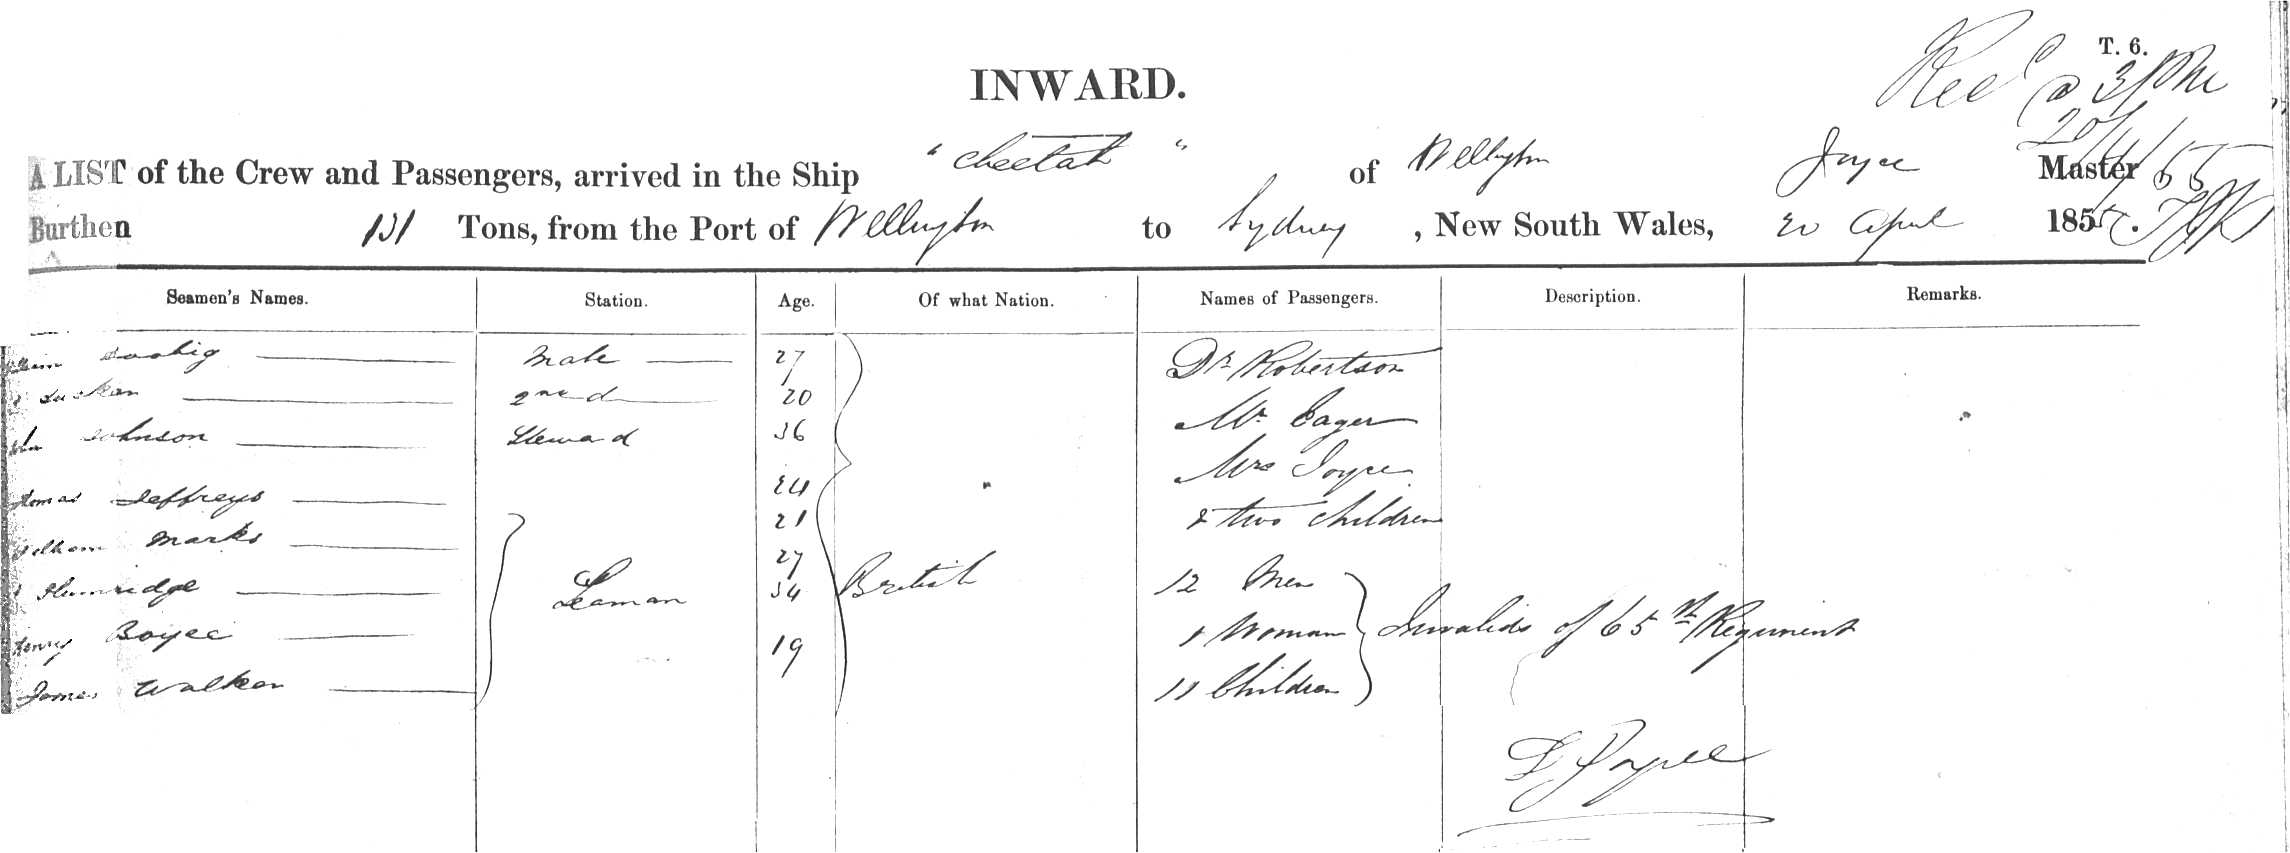 T. 6.
Rec^d @ 3 PM
20/4/55
INWARD.
A LIST of the Crew and Passengers, arrived in the Ship "Cheetah" of Wellington Joyce Master,
Burthen 131 Tons, from the Port of Wellington to Sydney, New South Wales, 20 April 1855.
Seamen's Names. Station. Age. Of what Nation. Names of Passengers. Description. Remarks.
Mate 27 Dr Robertson
2nd 20 Mr Eager
Johnson Steward 36 Mrs Joyce
Thomas Jeffreys 24 & two children
William Marks 21
27 12 Men
Seaman 34 British
Henry Boyce 19 1 Woman Invalids of 65th Regiment
James Walker 11 Children
Joyce